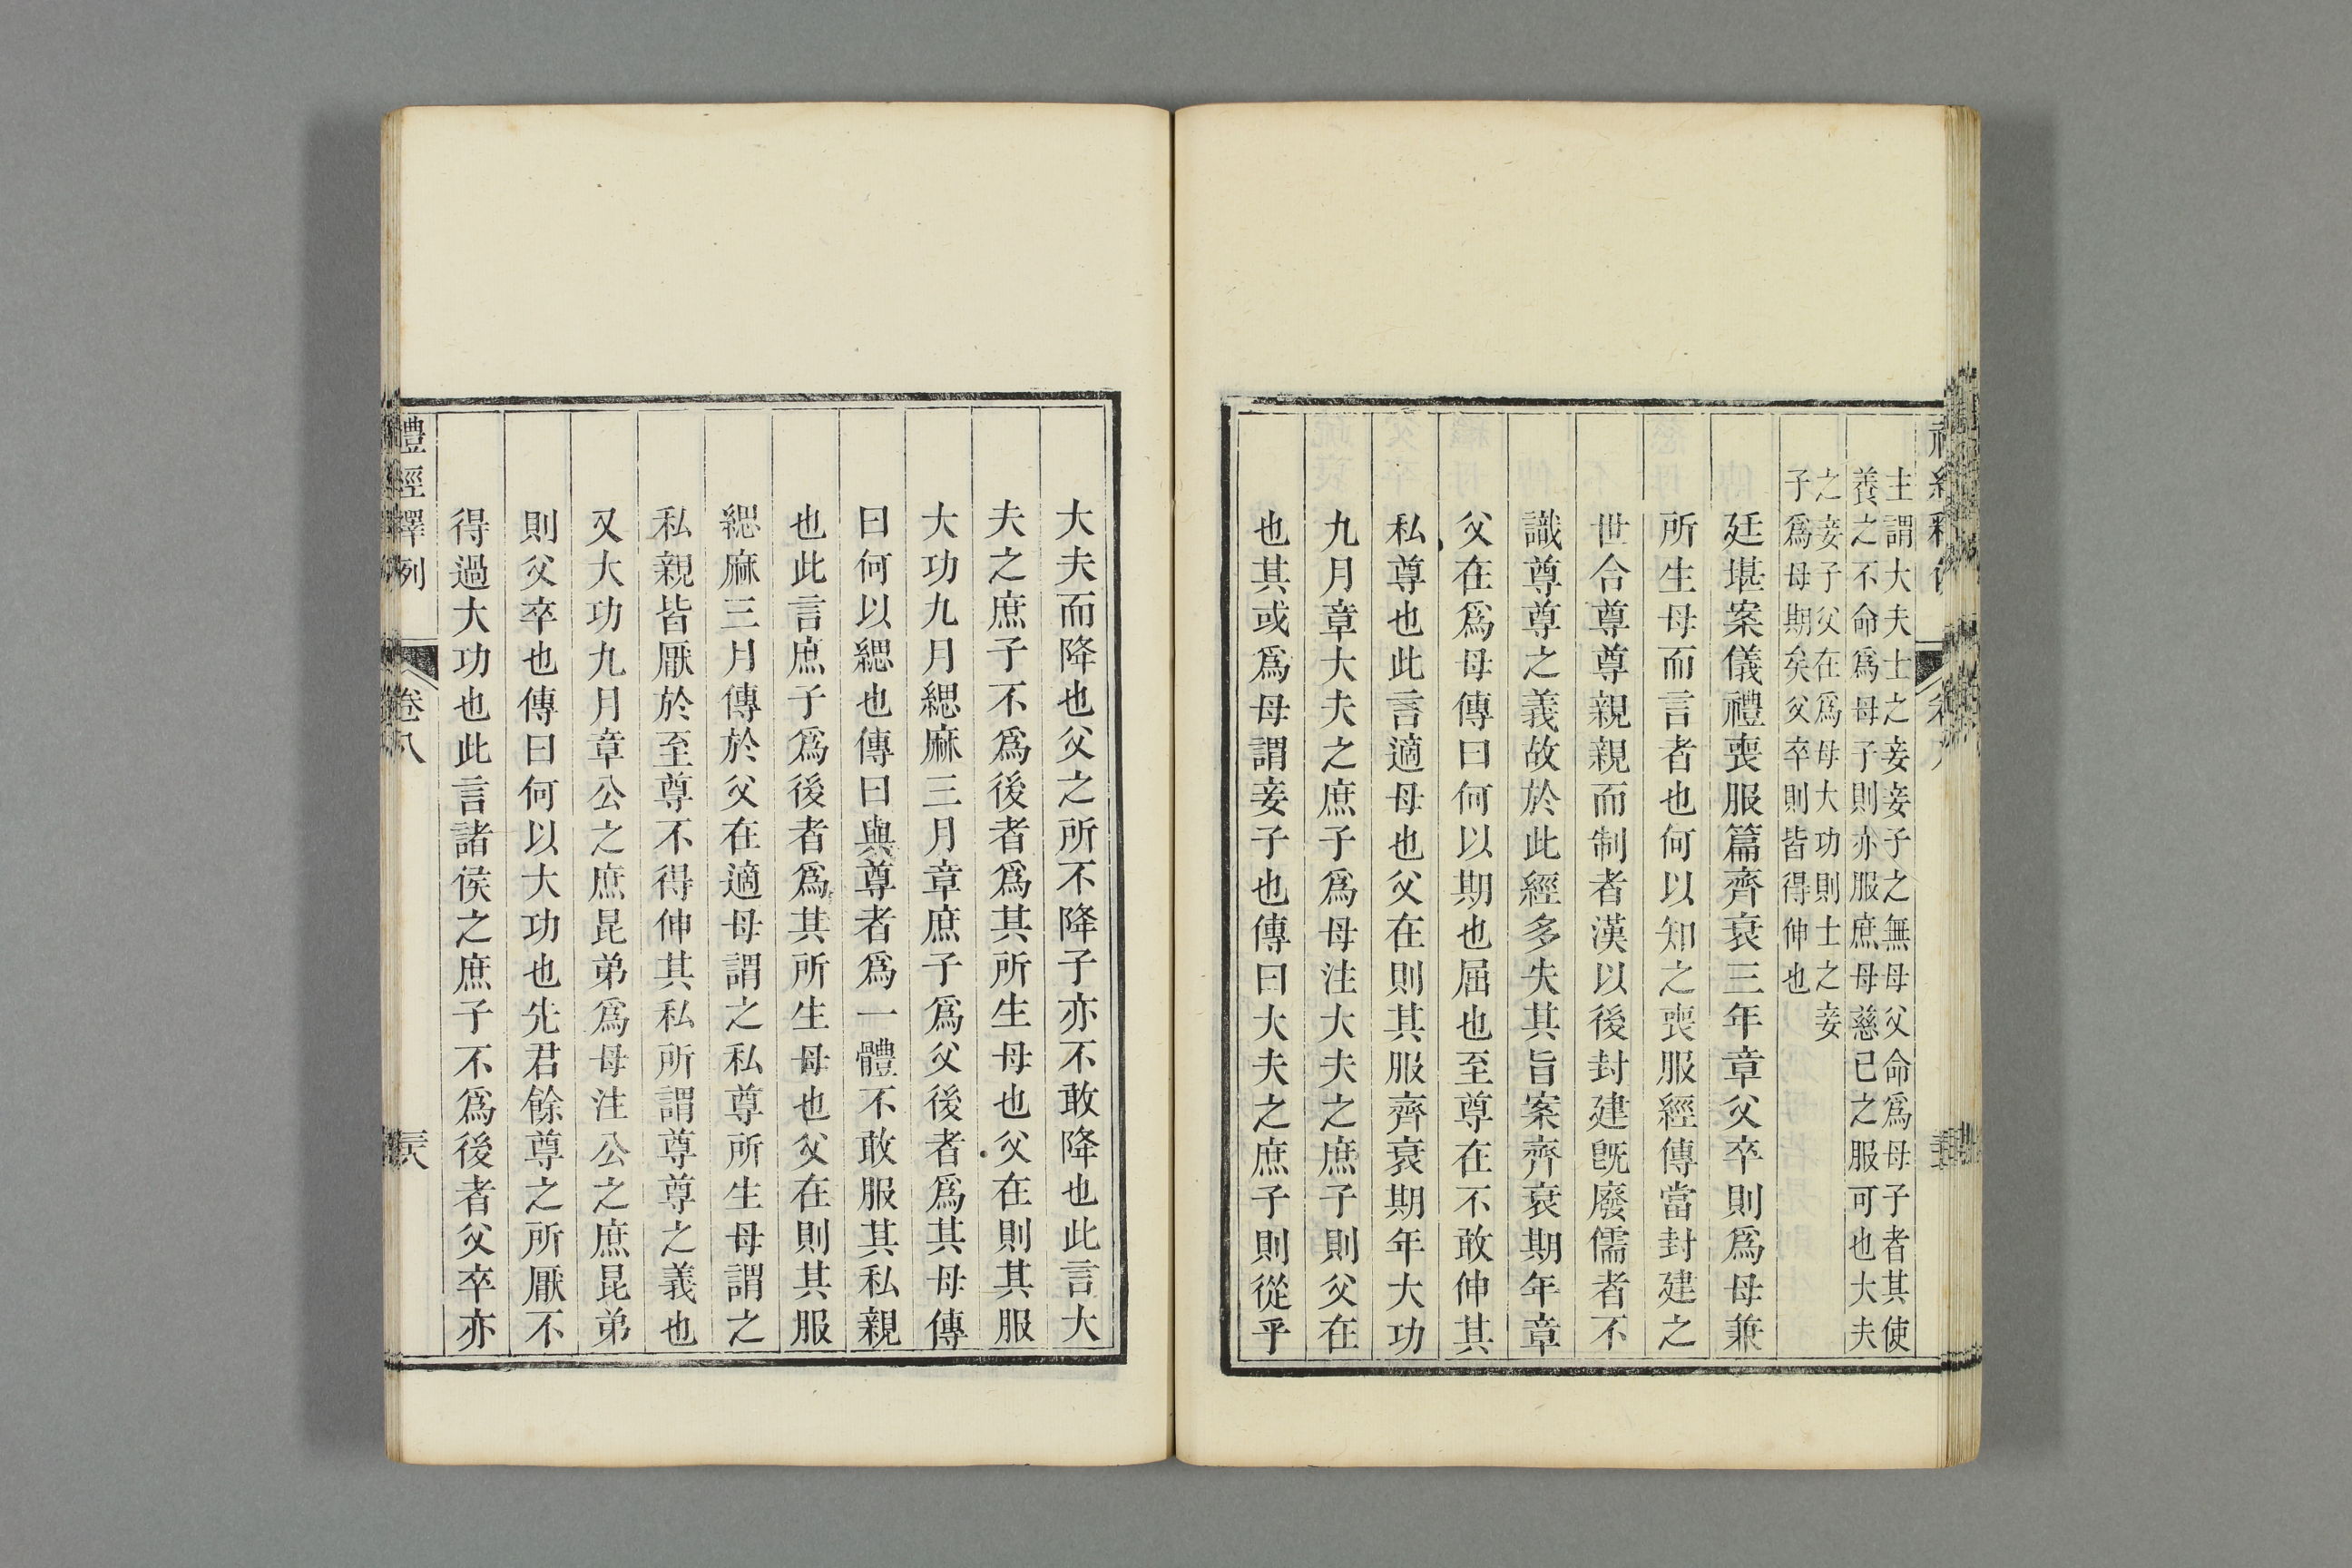 主謂大夫士之妾妾子之無母父命爲母子者其使
養之不命爲母子則亦服庶母慈已之服可也大夫
之妾子父在爲母大功則士之妾
子爲母期矣父卒則皆得伸也
廷堪案儀禮喪服篇齊衰三年章父卒則爲母兼
所生母而言者也何以知之喪服經傳當封建之
世合尊尊親親而制者漢以後封建旣廢儒者不
識尊尊之義故於此經多失其旨案齊衰期年章
父在爲母傳曰何以期也屈也至尊在不敢伸其
私尊也此言適母也父在則其服齊衰期年大功
九月章大夫之庶子爲母注大夫之庶子則父在
也其或爲母謂妾子也傳曰大夫之庶子則從乎
大夫而降也父之所不降子亦不敢降也此言大
夫之庶子不爲後者爲其所生母也父在則其服
大功九月緦麻三月章庶子爲父後者爲其母傳
曰何以緦也傳曰與尊者爲一體不敢服其私親
也此言庶子爲後者爲其所生母也父在則其服
緦麻三月傳於父在適母謂之私尊所生母謂之
私親皆厭於至尊不得伸其私所謂尊尊之義也
又大功九月章公之庶昆弟爲母注公之庶昆弟
則父卒也傳曰何以大功也先君餘尊之所厭不
得過大功也此言諸侯之庶子不爲後者父卒亦
禮經釋例
卷八